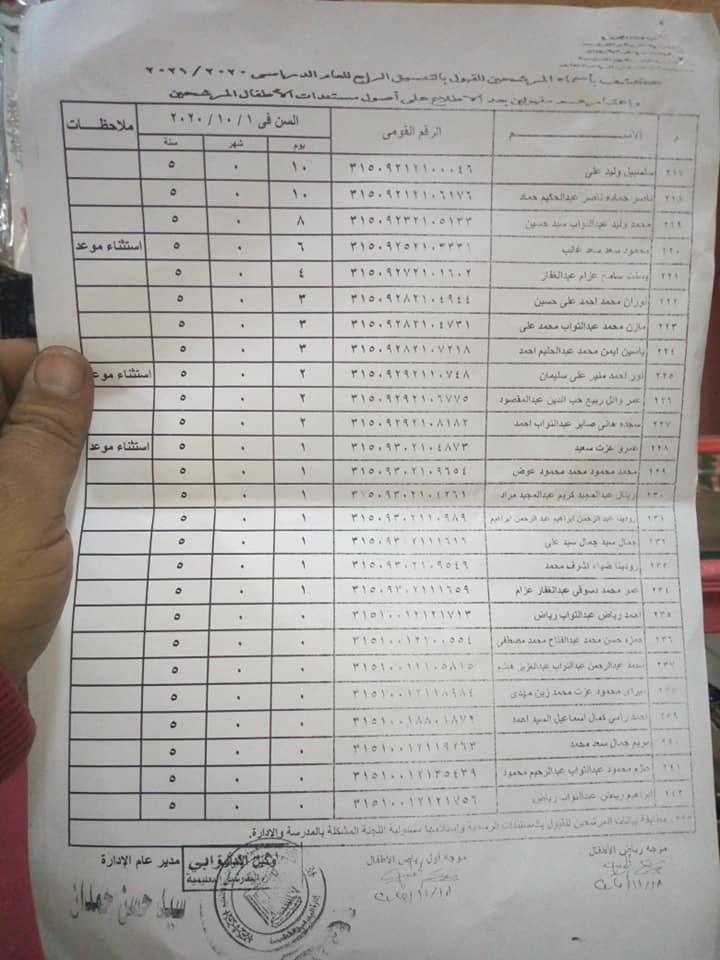 كشف بأسماء المرشحين للقبول بالتنسيق الرابع للعام الدراسى ٢٠٢٠ / ٢٠٢١
بعد الاطلاع على أصول مستندات الأطفال المرشحين
م الاســــم الرقم القومى السن فى ١ / ١٠ / ٢٠٢٠ ملاحظات
يوم شهر سنة
٢١٧ سلسبيل وليد على ٣١٥٠٩٢١٢١٠٠٠٤٦ ١٠ ٠ ٥
٢١٨ ناصر حماده ناصر عبدالحكيم حماد ٣١٥٠٩٢١٢١٠٦١٧٦ ١٠ ٠ ٥
٢١٩ محمد وليد عبدالتواب سيد حسين ٣١٥٠٩٢٣٢١٠٥١٣٣ ٨ ٠ ٥
٢٢٠ محمود سعد سعد غالب ٣١٥٠٩٢٥٢١٠٣٣٣١ ٦ ٠ ٥ استثناء موعد
٢٢١ سامح عزام عبدالغفار ٣١٥٠٩٢٧٢١٠١٦٠٢ ٤ ٠ ٥
٢٢٢ نوران محمد احمد على حسين ٣١٥٠٩٢٨٢١٠٤٩٤٤ ٣ ٠ ٥
٢٢٣ مازن محمد عبدالتواب محمد على ٣١٥٠٩٢٨٢١٠٤٧٣١ ٣ ٠ ٥
٢٢٤ ياسين ايمن محمد عبدالحليم احمد ٣١٥٠٩٢٨٢١٠٧٢١٨ ٣ ٠ ٥
٢٢٥ نور احمد منير على سليمان ٣١٥٠٩٢٩٢١١٠٧٤٨ ٢ ٠ ٥ استثناء موعد
٢٢٦ عمر وائل ربيع حب الدين عبدالمقصود ٣١٥٠٩٢٩٢١٠٦٧٧٥ ٢ ٠ ٥
٢٢٧ سجده هانى صابر عبدالتواب احمد ٣١٥٠٩٢٩٢١٠٨١٨٢ ٢ ٠ ٥
٢٢٨ عمرو عزت سعيد ٣١٥٠٩٣٠٢١٠٤٨٧٣ ١ ٠ ٥ استثناء موعد
٢٢٩ محمد محمود محمد محمود عوض ٣١٥٠٩٣٠٢١٠٩٦٥٤ ١ ٠ ٥
٢٣٠ ريتال عبدالمجيد كريم عبدالمجيد مراد ٣١٥٠٩٣٠٢١٠٤٢٦١ ١ ٠ ٥
٢٣١ رودينا عبد الرحمن ابراهيم عبد الرحمن ابراهيم ٣١٥٠٩٣٠٢١١٠٩٨٩ ١ ٠ ٥
٢٣٢ جمال سيد جمال سيد على ٣١٥٠٩٣٠٢١١١٦١٦ ١ ٠ ٥
٢٣٣ رودينا ضياء اشرف محمد ٣١٥٠٩٣٠٢١٠٩٥٤٩ ١ ٠ ٥
٢٣٤ عمر محمد دسوقى عبدالغفار عزام ٣١٥٠٩٣٠٢١١١٦٥٩ ١ ٠ ٥
٢٣٥ احمد رياض عبدالتواب رياض ٣١٥١٠٠١٢١٢١٧١٣ ٠ ٠ ٥
٢٣٦ حمزه حسن محمد عبدالفتاح محمد مصطفى ٣١٥١٠٠١٢١٠٠٥٥٤ ٠ ٠ ٥
٢٣٧ محمد عبدالرحمن عبدالتواب عبدالعزيز ٣١٥١٠٠١١١٠٥٨١٥ ٠ ٠ ٥
٢٣٨ محمود عزت محمد زين مهدى ٣١٥١٠٠١٢١١٨٩٨٤ ٠ ٠ ٥
٢٣٩ احمد رامى كمال اسماعيل السيد احمد ٣١٥١٠٠١٨٨٠١٨٧٢ ٠ ٠ ٥
٢٤٠ مريم جمال سعد محمد ٣١٥١٠٠١٢١١٩٢٦٣ ٠ ٠ ٥
٢٤١ حازم محمود عبدالتواب عبدالرحيم محمود ٣١٥١٠٠١٢١٣٥٤٣٩ ٠ ٠ ٥
٢٤٢ ابراهيم رياض عبدالتواب رياض ٣١٥١٠٠١٢١٢١٧٥٦ ٠ ٠ ٥
*** مطابقة بيانات المرشحين للقبول بالمستندات الرسمية واستلامها مسئولية اللجنة المشكلة بالمدرسة والإدارة.
موجه رياض الأطفال موجه أول رياض الأطفال وكيل الإدارة مدير عام الإدارة
سيد حسن حمدان